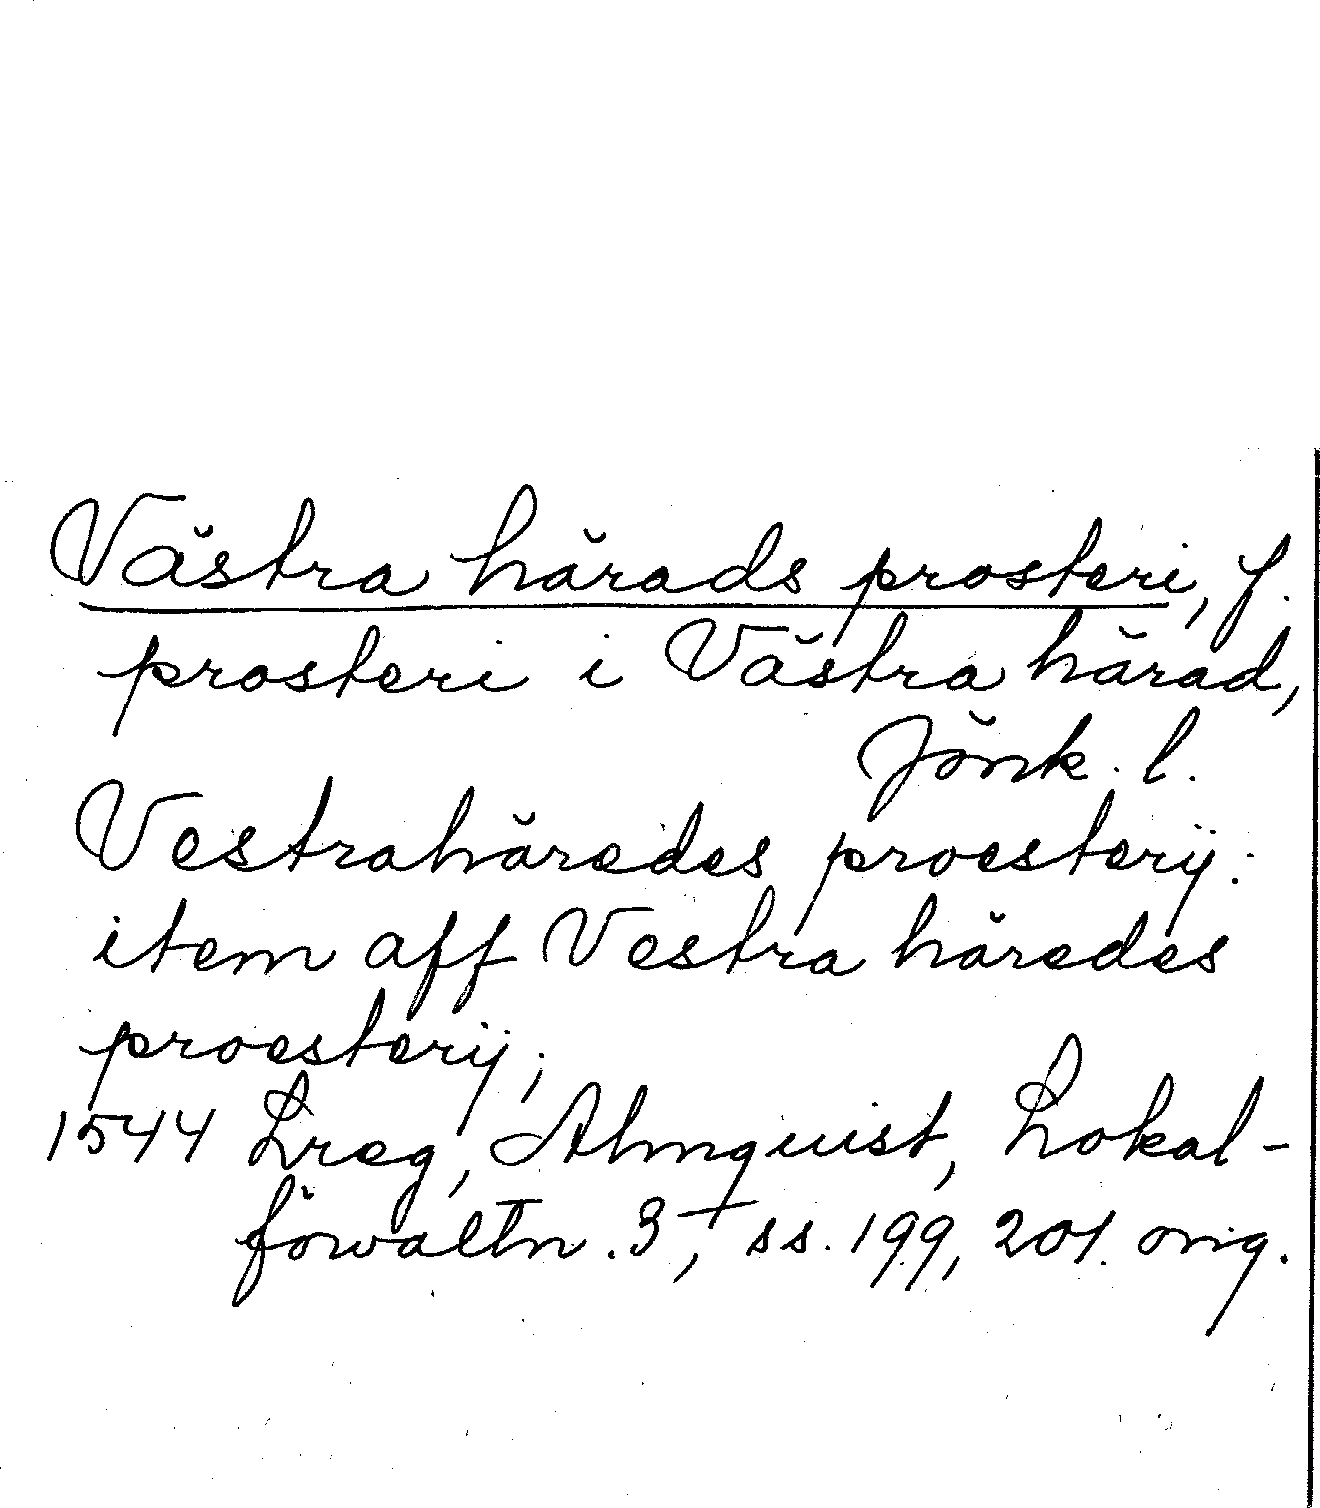 Västra härads prosteri, f.
prosteri i Västra härad,
Jönk. l.
Vestrahäredes proesterij:
item aff Vestra häredes
proesterij;
1544 Lreg, Almquist, Lokal-
förvaltn. 3, ss. 199, 201. orig.